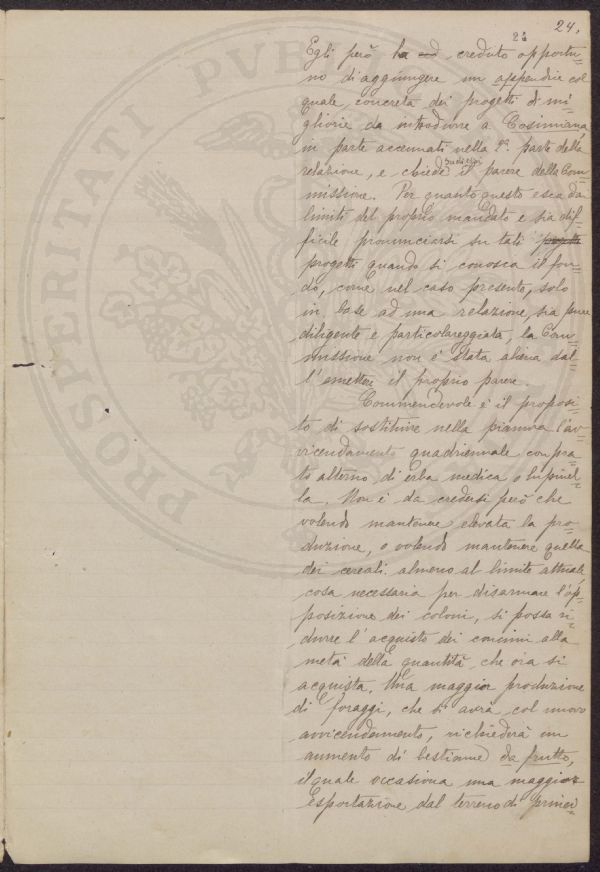 24.
21
Egli però ha creduto opportu-
no di aggiungere un appendice col
quale concreta dei progetti di mi-
gliorie da introdurre a Cosimiana,
in parte accennati nella 1ª parte della
relazione, e chiede sudessi il parere della Com-
missione. Per quanto questo esca dai
limiti del proprio mandato e sia dif-
ficile pronunciarsi su tali progetti
progetti quando si conosca il fon-
do, come nel caso presente, solo
in base ad una relazione, sia pure
diligente e particolareggiata, la Com-
missione non è stata aliena dal-
l'emettere il proprio parere.
Commendevole è il proposi-
to di sostituire nella pianura l'av-
vicendamento quadriennale con pra-
to alterno di erba medica o lupinel-
la. Non è da credersi però che
volendo mantenere elevata la pro-
duzione, o volendo mantenere quella
dei cereali almeno al limite attuale
cosa necessaria per disarmare l'op-
posizione dei coloni, si possa ri-
durre l'acquisto dei concimi alla
metà della quantità che ora si
acquista. Una maggior produzione
di foraggi, che si avrà col nuovo
avvicendamento, richiederà un
aumento di bestiame da frutto,
il quale occasiona una maggior
esportazione dal terreno di princi-
PROSPERITATI PVBL